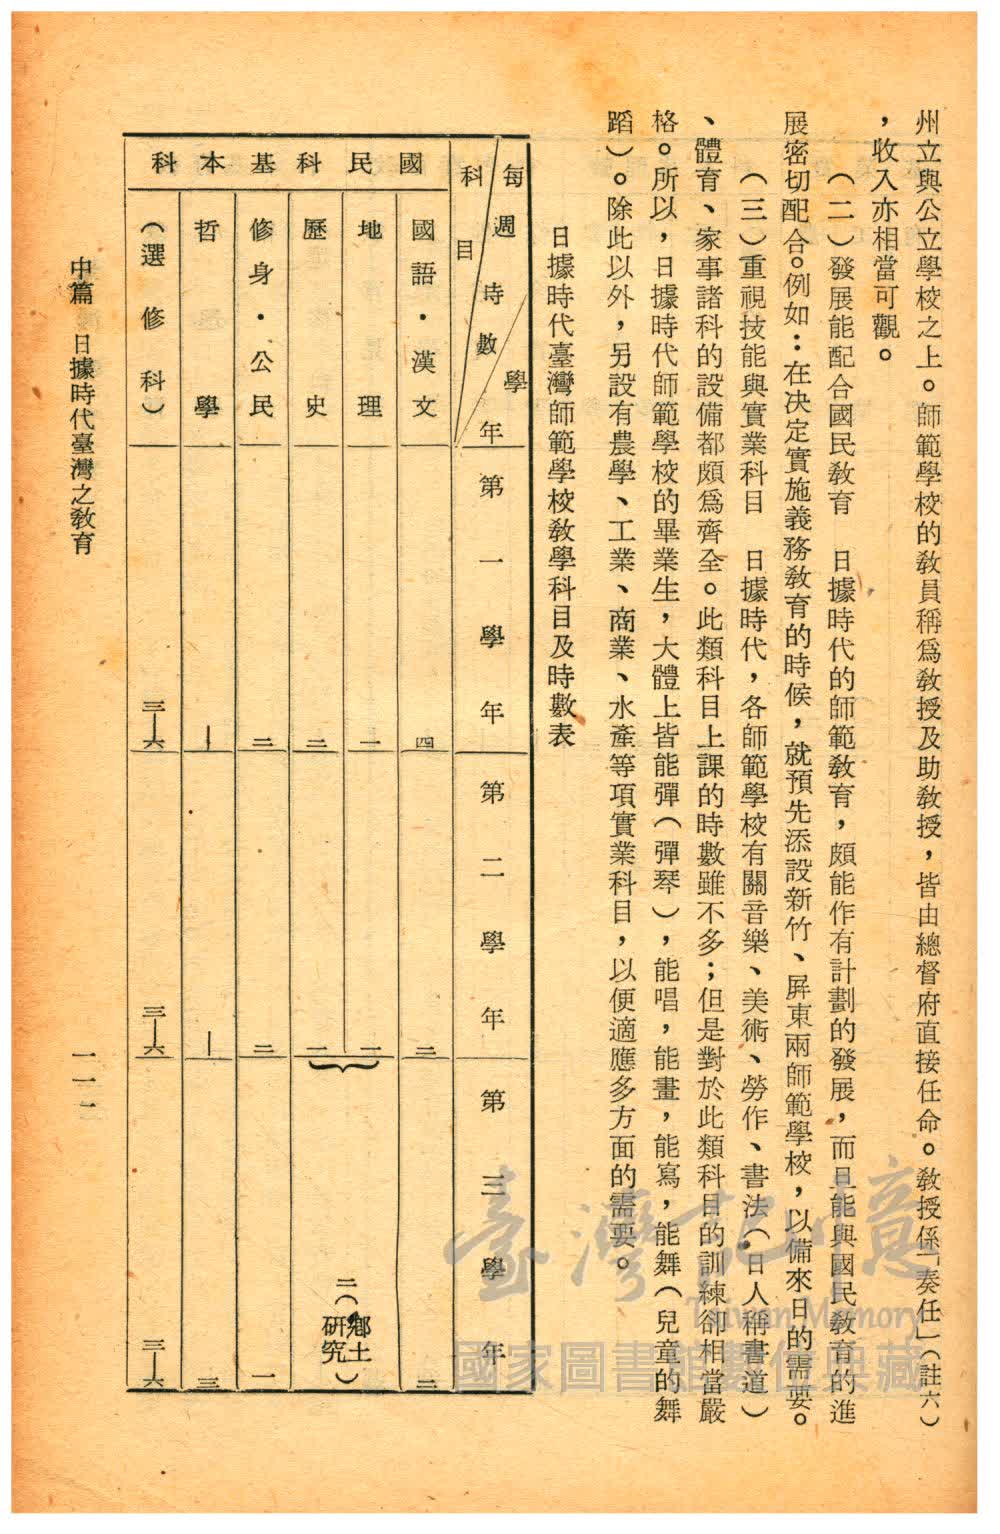 州立與公立學校之上。師範學校的教員稱爲教授及助教授，皆由總督府直接任命。教授係「奏任」（註六）
，收入亦相當可觀。
（二）發展能配合國民教育　日據時代的師範教育，頗能作有計劃的發展，而且能與國民教育的進
展密切配合。例如：在決定實施義務教育的時候，就預先添設新竹、屏東兩師範學校，以備來日的需要。
（三）重視技能與實業科目　日據時代，各師範學校有關音樂、美術、勞作、書法（日人稱書道）
、體育、家事諸科的設備都頗爲齊全。此類科目上課的時數雖不多；但是對於此類科目的訓練卻相當嚴
格。所以，日據時代師範學校的畢業生，大體上皆能彈（彈琴），能唱，能畫，能寫，能舞（兒童的舞
蹈）。除此以外，另設有農學、工業、商業、水產等項實業科目，以便適應多方面的需要。
日據時代臺灣師範學校教學科目及時數表
每週時數
科目
學年
第一學年
第二學年
第三學年
國民科基本科
國語・漢文
四
二
二
地理
一
一
歷史
二
一
二（鄉土研究）
修身・公民
二
二
一
哲學
—
—
三
（選修科）
三—六
三—六
三—六
中篇　日據時代臺灣之教育
一一一
臺灣記憶
Taiwan Memory
國家圖書館數位典藏